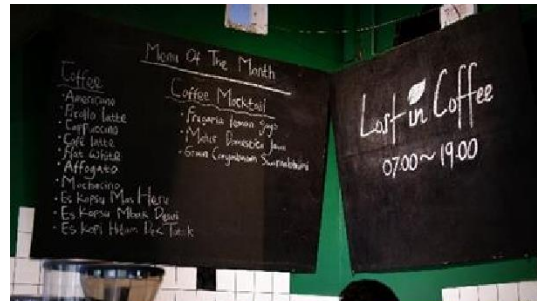 Menu Of The Month
Coffee
• Americano
• Picollo latte
• Cappuccino
• Cafe latte
• Flat White
• Affogato
• Mochacino
• Es Kapsu Mas Heru
• Es Kapsu Mbak Desri
• Es Kopi Hitam Pak Tatik
Coffee Mocktail
• Fragaria lemon
• Malus Domestica Jawa
Lost in Coffee
07.00 ~ 19.00